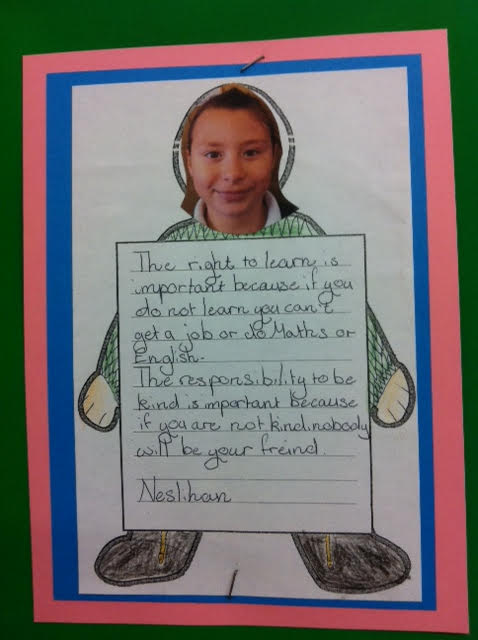 The right to learn is
important because if you
do not learn you can't
get a job or do Maths or
English.
The responsibility to be
kind is important because
if you are not kind nobody
will be your freind.
Neslihan